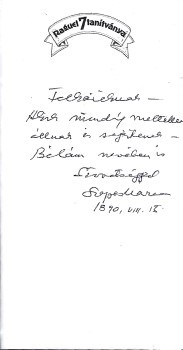 Ráguel 7 tanítványa
Felkáidnak –
Akik mindig mellettem
állnak és segítenek –
Bélám nevében is
Szeretettel
Szepes Mária
1990. VIII. 15.